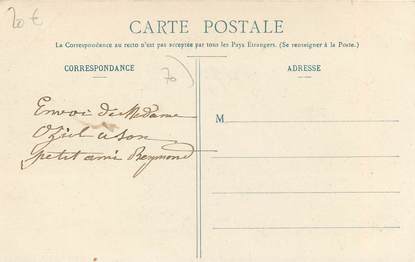 20 €
CARTE POSTALE
La Correspondance au recto n'est pas acceptée par tous les Pays Etrangers. (Se renseigner à la Poste.)
CORRESPONDANCE
70
ADRESSE
Envoi de Madame
Oziol a son
petit ami Reymond
M